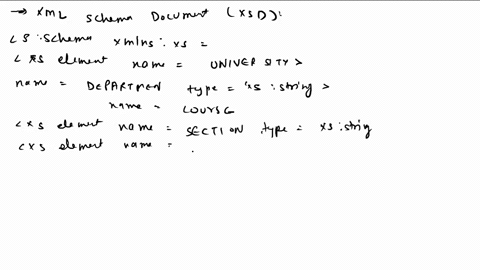 → XML Schema Document (XSD):
< S : schema xmlns : xs =
< xs element name = UNIVERSITY >
name = DEPARTMEN type = "xs : string >
name = COURSG
< xs element name = SECTION type = xs : string
< xs element name =